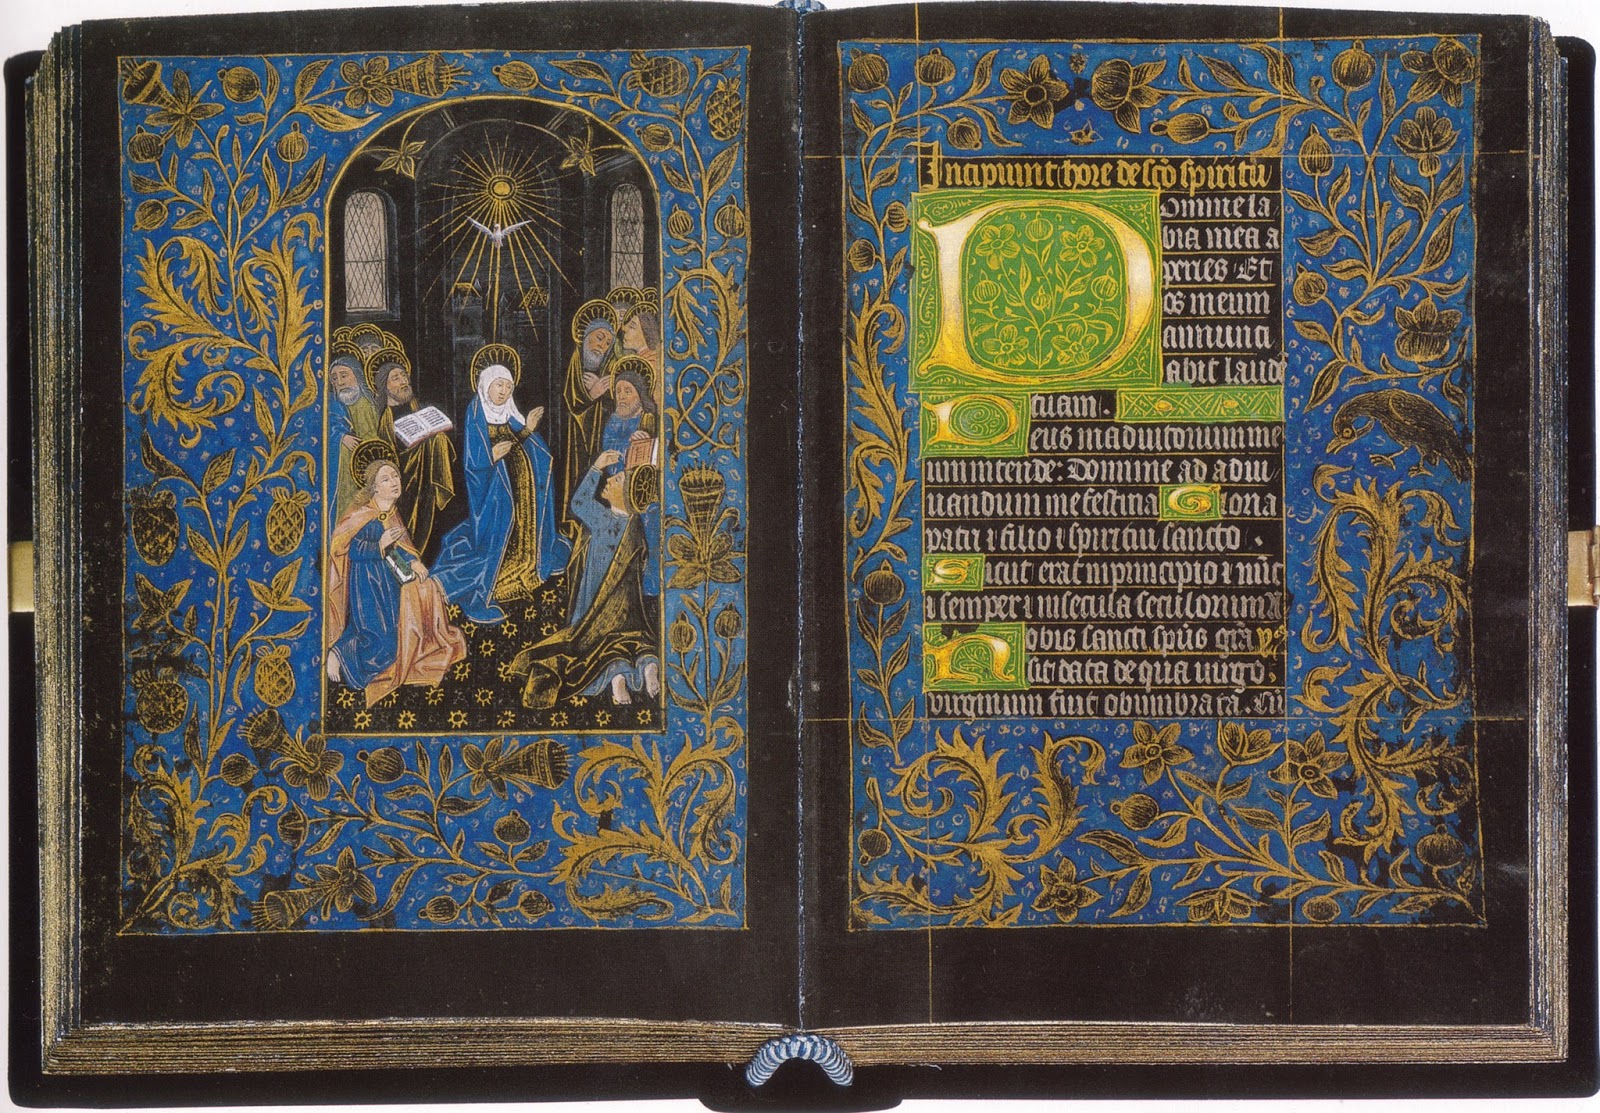 Incipiunt hore de sco spiritu
Domine la
bia mea a
peries Et
os meum
annunci
abit laude
tuam.
Deus in adiutorium me
um intende: Domine ad adiu
uandum me festina Gloria
patri ⁊ filio ⁊ spiritui sancto.
Sicut erat in principio ⁊ nūc
⁊ semper ⁊ in secula seculorum
Nobis sancti spūs grā
sit data de qua uirgo
virginum fuit obumbrata. Cū